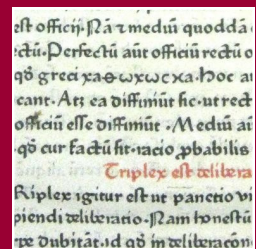 est officij. Nã ⁊ mediũ quoddã
ectũ. Perfectũ aũt officiũ rectũ o
qđ greci
cant. Atꝫ ea diffiniũt sic. ut rect
officiũ esse diffiniũt. Mediũ aũ
qđ cur factũ sit. racio ꝓbabilis
Triplex est delibera
Riplex igitur est ut panetio vi
piendi deliberatio. Nam honestũ
dubitãt. id qđ in deliberacõn